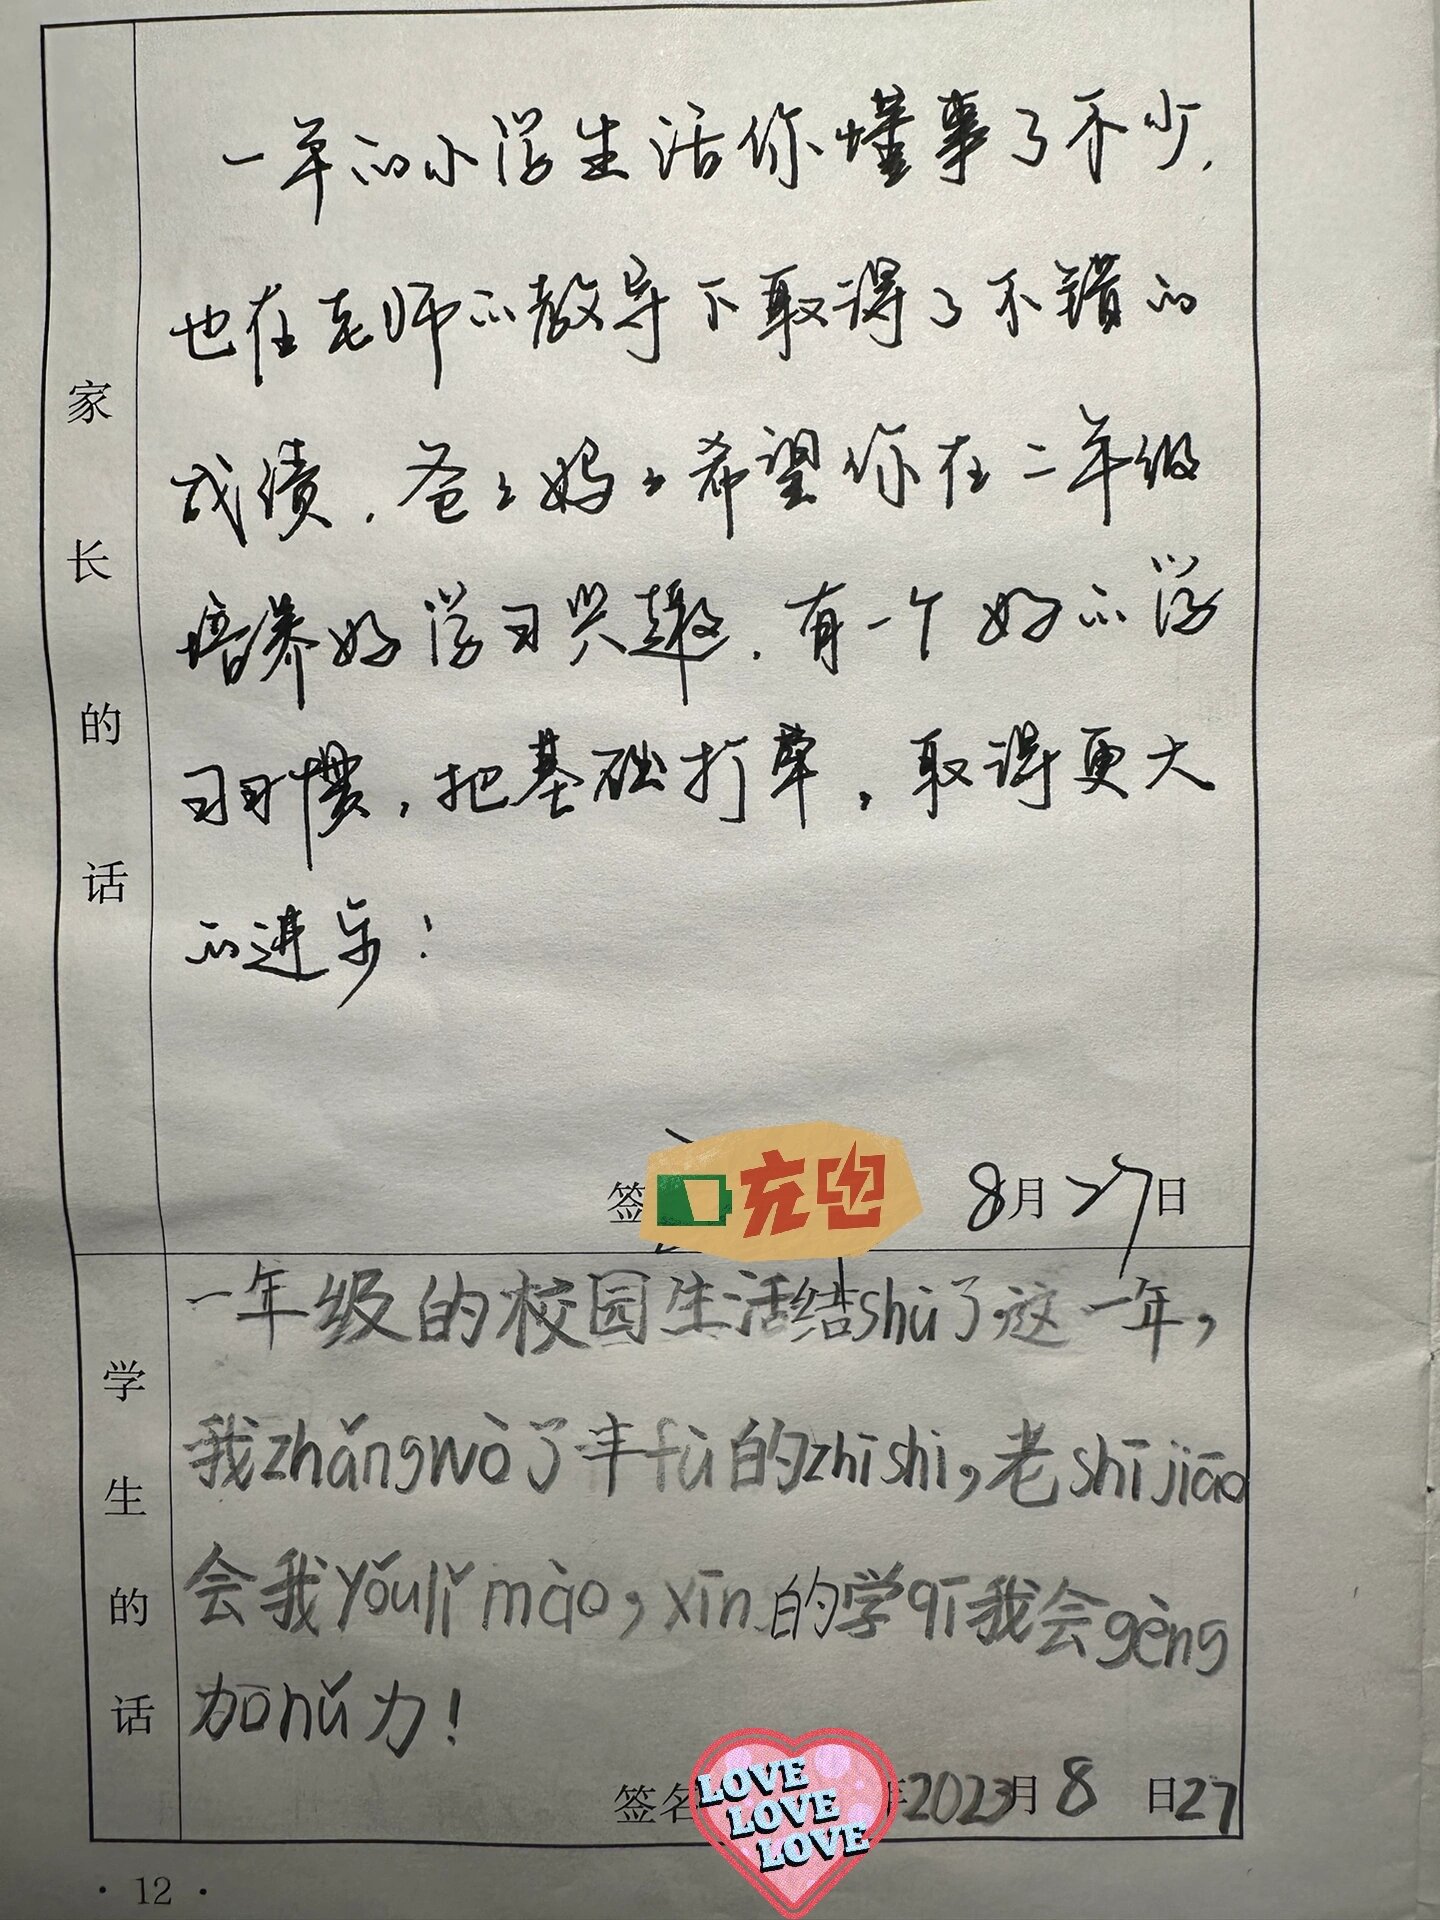 家长的话
一年的小学生活你懂事了不少,
也在老师的教导下取得了不错的
成绩.爸爸妈妈希望你在二年级
培养好学习兴趣.有一个好的学
习习惯,把基础打牢,取得更大
的进步!
签
充电
8月27日
学生的话
一年级的校园生活结shù了这一年,
我zhǎngwò了丰fù的zhīshi,老shījiāo
会我yǒulǐmào,xīn的学qī我会gèng
加nǔ力!
签名
LOVE
LOVE
LOVE
年2023月8日27
·12·